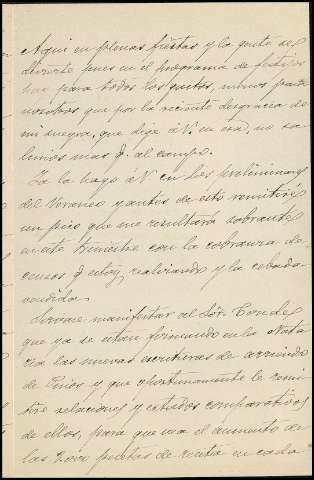 Aqui en plenas fiestas y la gente se
divierte pues en el programa de festejos
hay para todos los gustos, menos para
nosotros que por la reciente desgracia de
mi suegra, que dije á V. en esa, no sa-
limos mas q. al campo.
Ya la hago á V en los preliminares
del Veraneo y antes de esto remitiré
un pico que me resultará sobrante
en este trimestre con la cobranza de
censos q estoy realizando y la cebada
vendida.
Sirvase manifestar al Sor. Conde
que ya se estan formando en la Nota
ria las nuevas escrituras de arriendo
de y que oportunamente le remi
tire relaciones y estados comparativos
de ellos, para que vea el aumento de
las pesetas de renta en cada